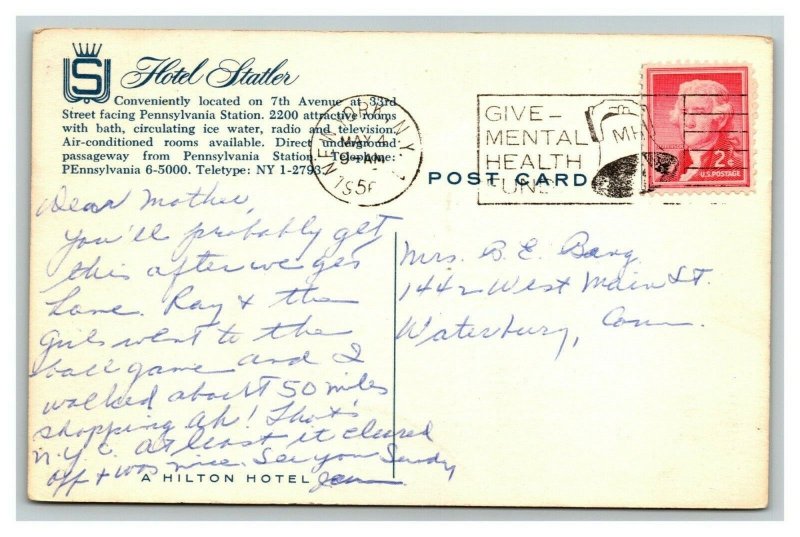 S
Hotel Statler
Conveniently located on 7th Avenue at 33rd
Street facing Pennsylvania Station. 2200 attractive rooms
with bath, circulating ice water, radio and television.
Air-conditioned rooms available. Direct underground
passageway from Pennsylvania Station. Telephone:
PEnnsylvania 6-5000. Teletype: NY 1-2793
NEW YORK, N.Y.
MAY 4
9 - AM
1956
GIVE-
MENTAL
HEALTH
FUND
MH
2¢
U.S. POSTAGE
POST CARD
Dear Mother,
You'll probably get
this after we get
home. Ray & the
girls went to the
ball game and I
walked about 50 miles
shopping Ah! That's
N.Y.C. At least it cleared
off & was nice. See you Sunday
Mrs. B. E.
1442 West Main St.
Waterbury, Conn.
A HILTON HOTEL